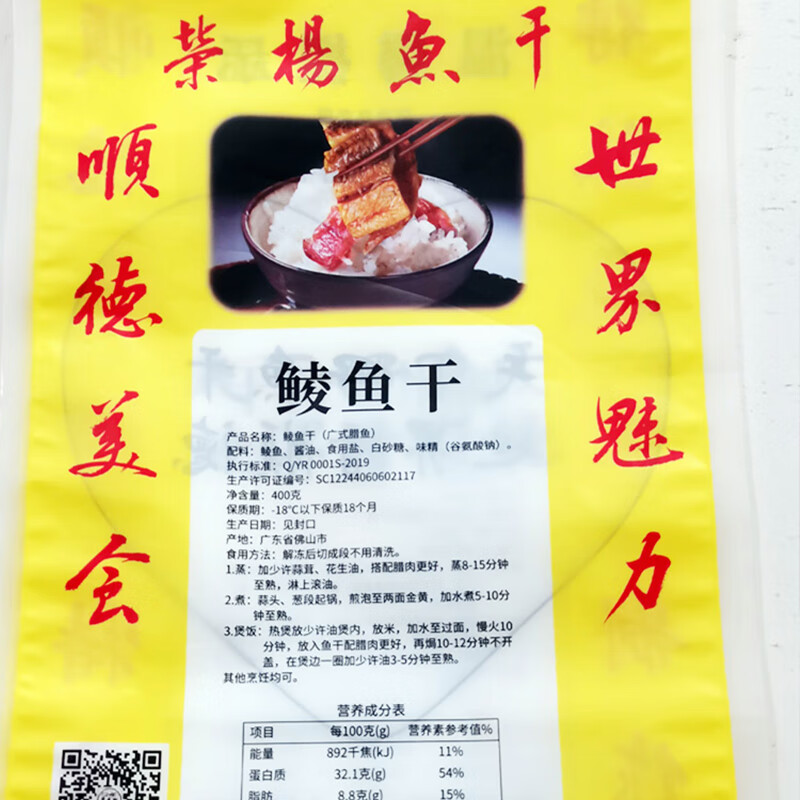 榮楊魚干
順德美食
世界魅力
鲮鱼干
产品名称：鲮鱼干（广式腊鱼）
配料：鲮鱼、酱油、食用盐、白砂糖、味精（谷氨酸钠）。
执行标准：Q/YR 0001S-2019
生产许可证编号：SC12244060602117
净含量：400克
保质期：-18℃以下保质18个月
生产日期：见封口
产地：广东省佛山市
食用方法：解冻后切成段不用清洗。
1.蒸：加少许蒜茸、花生油，搭配腊肉更好，蒸8-15分钟
至熟，淋上滚油。
2.煮：蒜头、葱段起锅，煎泡至两面金黄，加水煮5-10分
钟至熟。
3.煲饭：热煲放少许油煲内，放米，加水至过面，慢火10
分钟，放入鱼干配腊肉更好，再焗10-12分钟不开
盖，在煲边一圈加少许油3-5分钟至熟。
其他烹饪均可。
营养成分表
项目 每100克(g) 营养素参考值%
能量 892千焦(kJ) 11%
蛋白质 32.1克(g) 54%
脂肪 8.8克(g) 15%